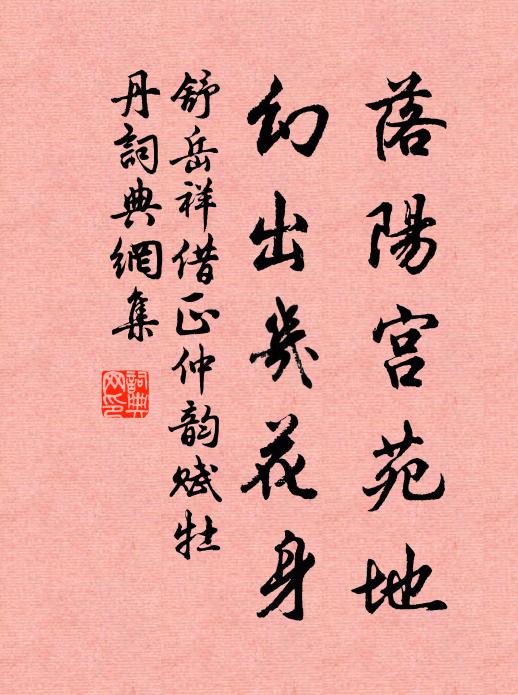 落陽宮苑地
幻出幾花身
舒岳祥借正仲韵賦牡
丹詞典網集
詞典
网印